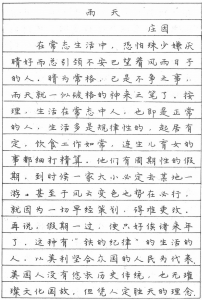 雨天
庄因
在常态生活中，恐怕殊少嫌厌
晴好而总引领不安已望着风雨日子
的人。晴为常格，已是不争之事。
雨天就一似破格的神来之笔了。按
理，生活在常态中人，也即是正常
的人，生活多是规律性的。起居有
定，饮食工作如常，连生儿育女的
事都细打精算。他们有周期性的假
期，到时候一家大小必定去某地一
游，甚至于风云变色也势在必行，
就因为一切早经策划，得难更改。
再说，假期一过，便只好挨诸来年
了。这种有“铁的纪律”的生活的
人，以美利坚合众国的人民为代表。
美国人没有悠长历史传统，也无璀
璨文化国故，但凭人定胜天的理念，